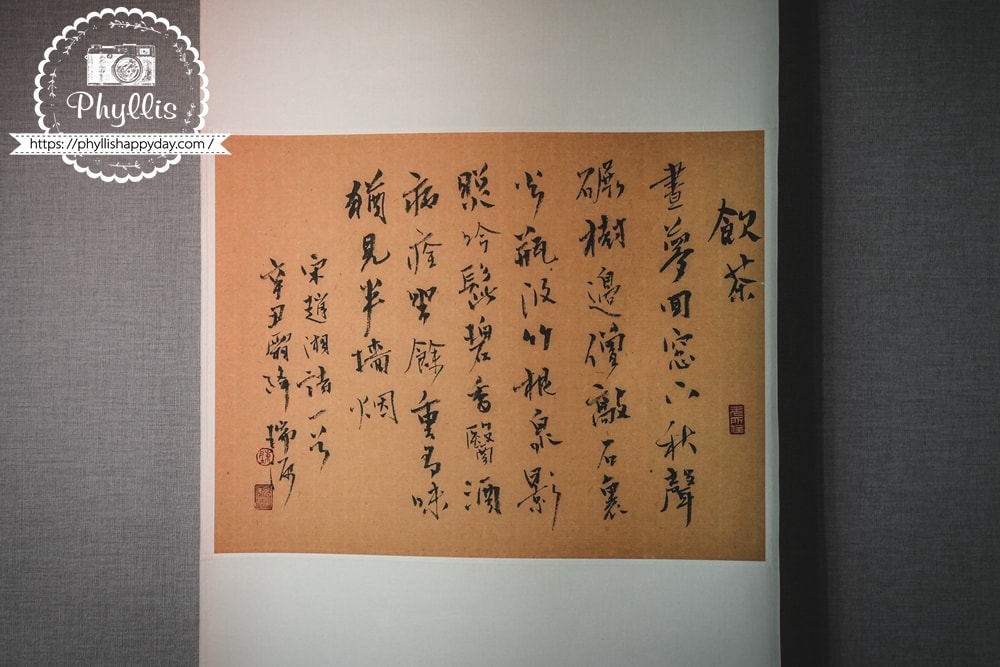 Phyllis
https://phyllishappyday.com /
飲茶
晝夢回窓下秋聲
碾樹邊僧敲石裏
火瓶汲竹根泉影
照吟髭碧香醫酒
病痊坐餘重有味
猶見半墻烟
宋趙湘詩一首
辛丑霜降瑞